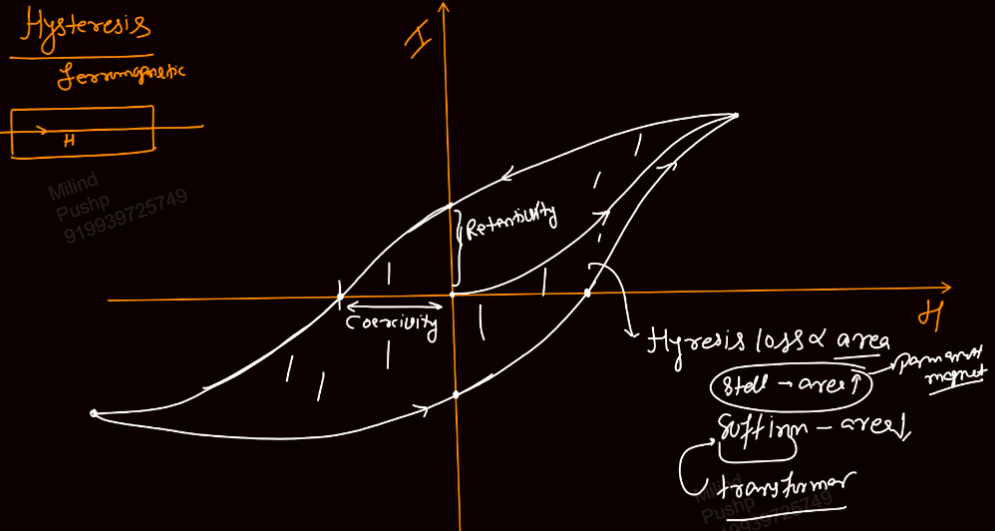 Hysteresis
ferromagnetic
H
I
Milind
Pushp
919939725749
Retentivity
Coercivity
H
Hyresis loss ∝ area
Steel → area ↑
permanent
magnet
Soft iron – area ↓
transformer
Milind
Pushp
919939725749